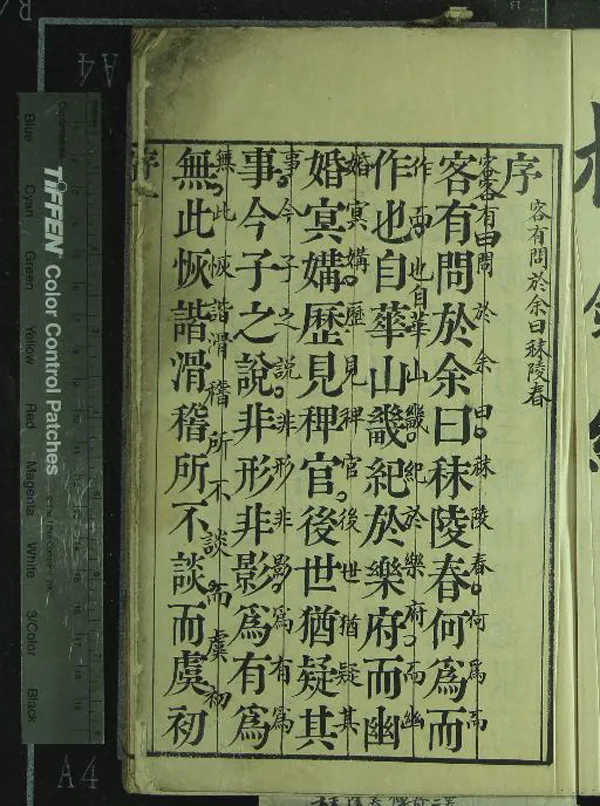 序
客有問於余曰秣陵春
客有問於余曰秣陵春何為而
客客有曰問於余曰。秣陵春。何為而
作也自華山畿紀於樂府而幽
作而。也自華山畿。紀於樂府。而幽
婚冥媾歷見稗官後世猶疑其
婚冥媾。歷見稗官。後世猶疑其
事今子之說非形非影為有為
事。今子之說。非形非影。為有為
無此恢諧滑稽所不談而虞初
無。此恢諧滑稽所不談。而虞初
TIFFEN Color Control Patches
Blue Cyan Green Yellow Red Magenta White 3/Color Black
A4
A4